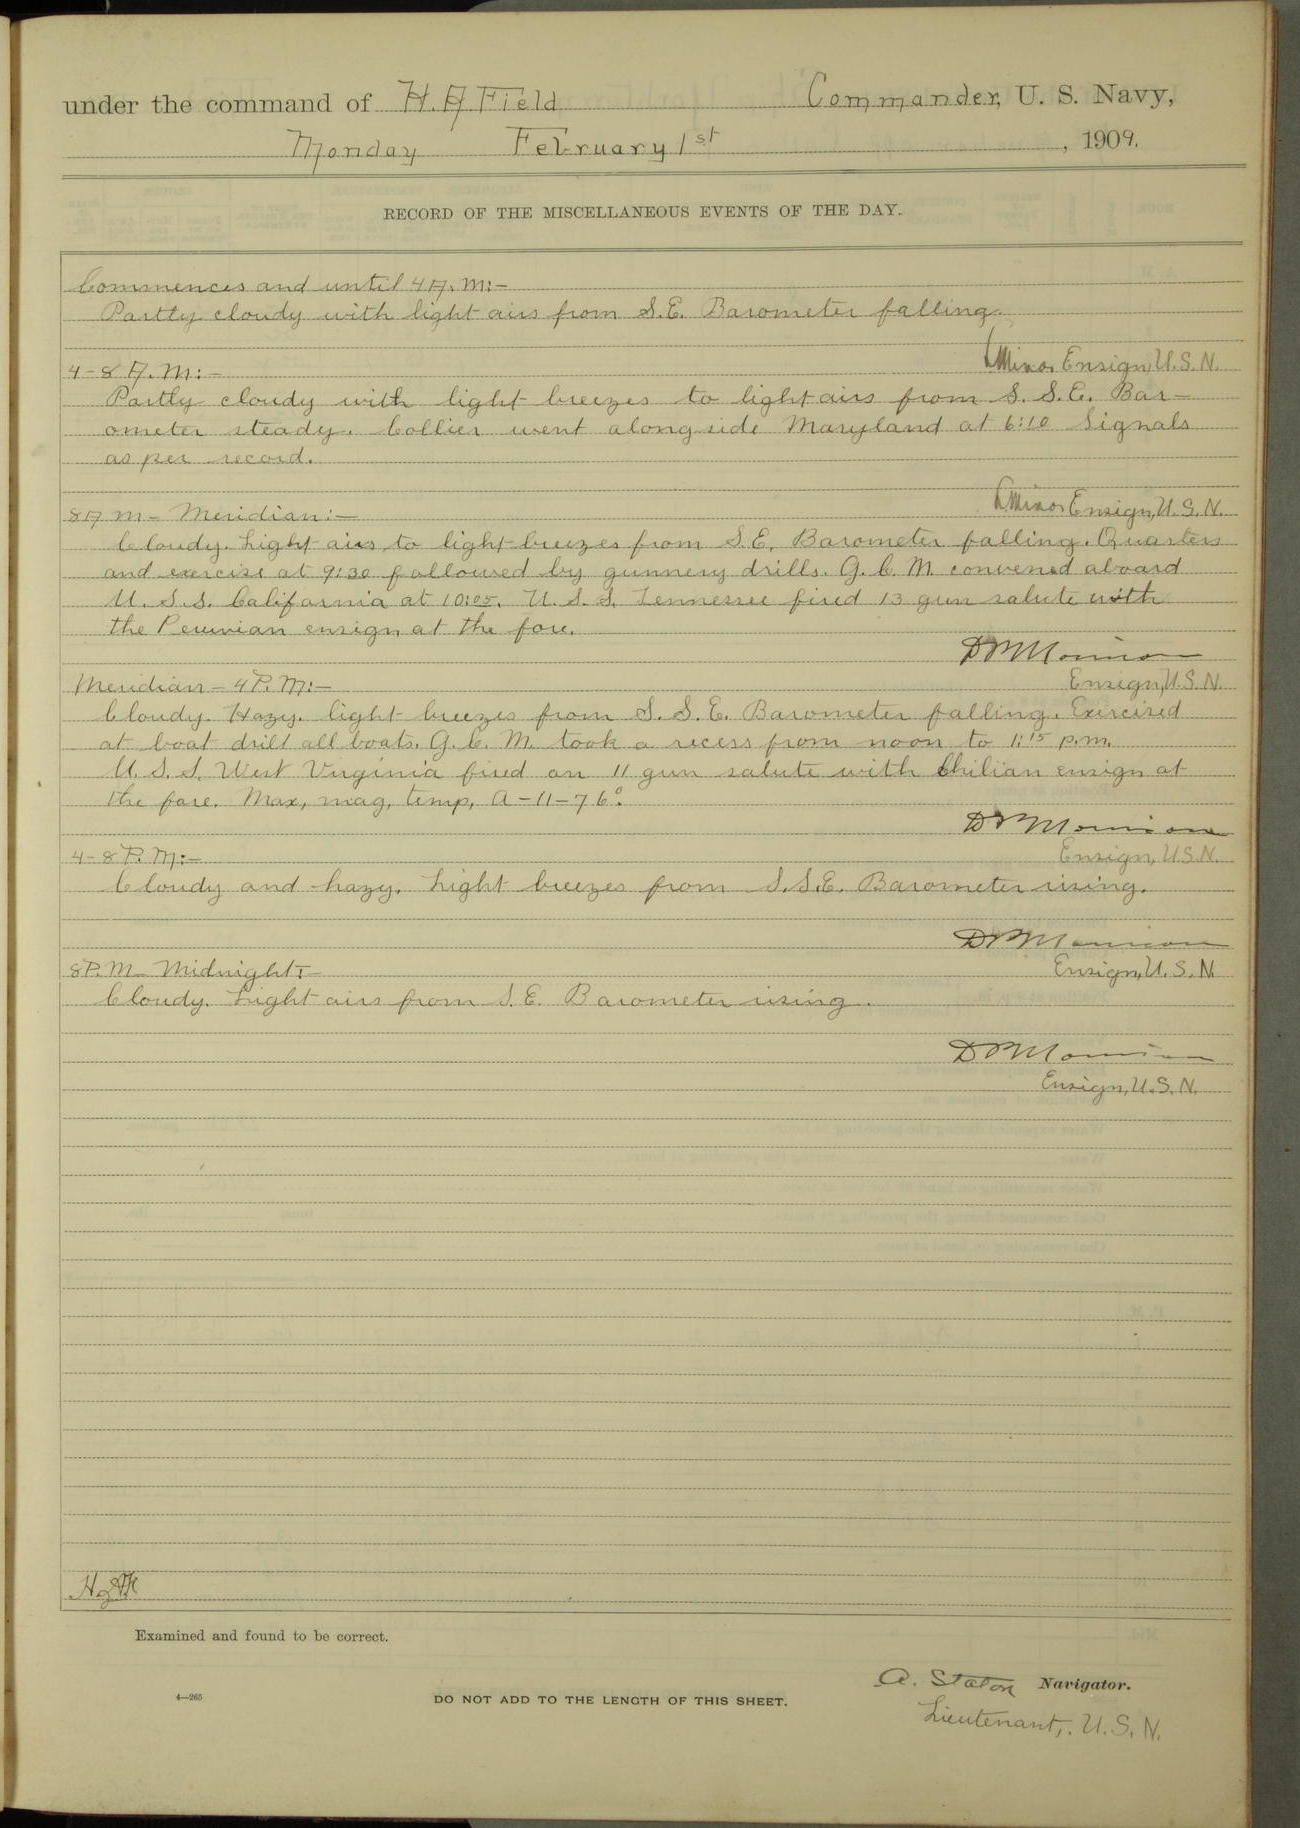 under the command of H. A Field Commander, U. S. Navy,
Monday February 1st, 1909.
RECORD OF THE MISCELLANEOUS EVENTS OF THE DAY.
Commences and until 4 A. M:-
Partly cloudy with light airs from S.E. Barometer falling.
Minor Ensign, U.S.N.
4-8 A. M:-
Partly cloudy with light breezes to light airs from S. S. E. Bar-
ometer steady. Collier went alongside Maryland at 6:10 Signals
as per record.
Minor Ensign, U.S.N.
8 A M - Meridian:-
Cloudy. Light airs to light breezes from S.E. Barometer falling. Quarters
and exercise at 9:30 followed by gunnery drills. G. C. M. convened aboard
U. S. S. California at 10:05. U. S. S. Tennessee fired 13 gun salute with
the Peruvian ensign at the fore.
D M Morrison
Ensign, U.S.N.
Meridian - 4 P. M:-
Cloudy. Hazy. light breezes from S. S. E. Barometer falling. Exercised
at boat drill all boats. G. C. M. took a recess from noon to 1:15 p.m.
U. S. S. West Virginia fired an 11 gun salute with Chilian ensign at
the fore. Max, mag, temp, A-11-76°.
D M Morrison
Ensign, U.S.N.
4-8 P. M:-
Cloudy and hazy. Light breezes from S.S.E. Barometer rising.
D M Morrison
Ensign, U. S. N
8 P. M - Midnight:-
Cloudy. Light airs from S. E. Barometer rising.
D M Morrison
Ensign, U.S.N.
Examined and found to be correct.
A. Staton Navigator.
4-265 DO NOT ADD TO THE LENGTH OF THIS SHEET.
Lieutenant, U. S. N.